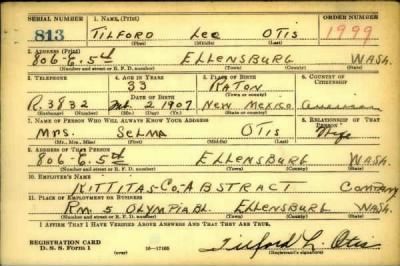 SERIAL NUMBER 1. NAME (Print) ORDER NUMBER
813 TILFORD LEE OTIS 1999
(First) (Middle) (Last)
2. ADDRESS (Print)
806-E. 5th ELLENSBURG WASH.
(Number and street or R. F. D. number) (Town) (County) (State)
3. TELEPHONE 4. AGE IN YEARS 5. PLACE OF BIRTH 6. COUNTRY OF CITIZENSHIP
33 RATON
DATE OF BIRTH (Town or county)
R. 3832 2 1907 NEW MEXICO
(Exchange) (Number) (Mo.) (Day) (Yr.) (State or country)
7. NAME OF PERSON WHO WILL ALWAYS KNOW YOUR ADDRESS 8. RELATIONSHIP OF THAT PERSON
MRS. SELMA OTIS Wife
(Mr., Mrs., Miss) (First) (Middle) (Last)
9. ADDRESS OF THAT PERSON
806-E. 5th ELLENSBURG WASH.
(Number and street or R. F. D. number) (Town) (County) (State)
10. EMPLOYER'S NAME
KITTITAS-CO. ABSTRACT COMPANY
11. PLACE OF EMPLOYMENT OR BUSINESS
RM 5 OLYMPIA BL. ELLENSBURG WASH.
(Number and street or R. F. D. number) (Town) (County) (State)
I AFFIRM THAT I HAVE VERIFIED ABOVE ANSWERS AND THAT THEY ARE TRUE.
REGISTRATION CARD
D. S. S. Form 1 16—17105 Tilford L. Otis
(Registrant's signature)